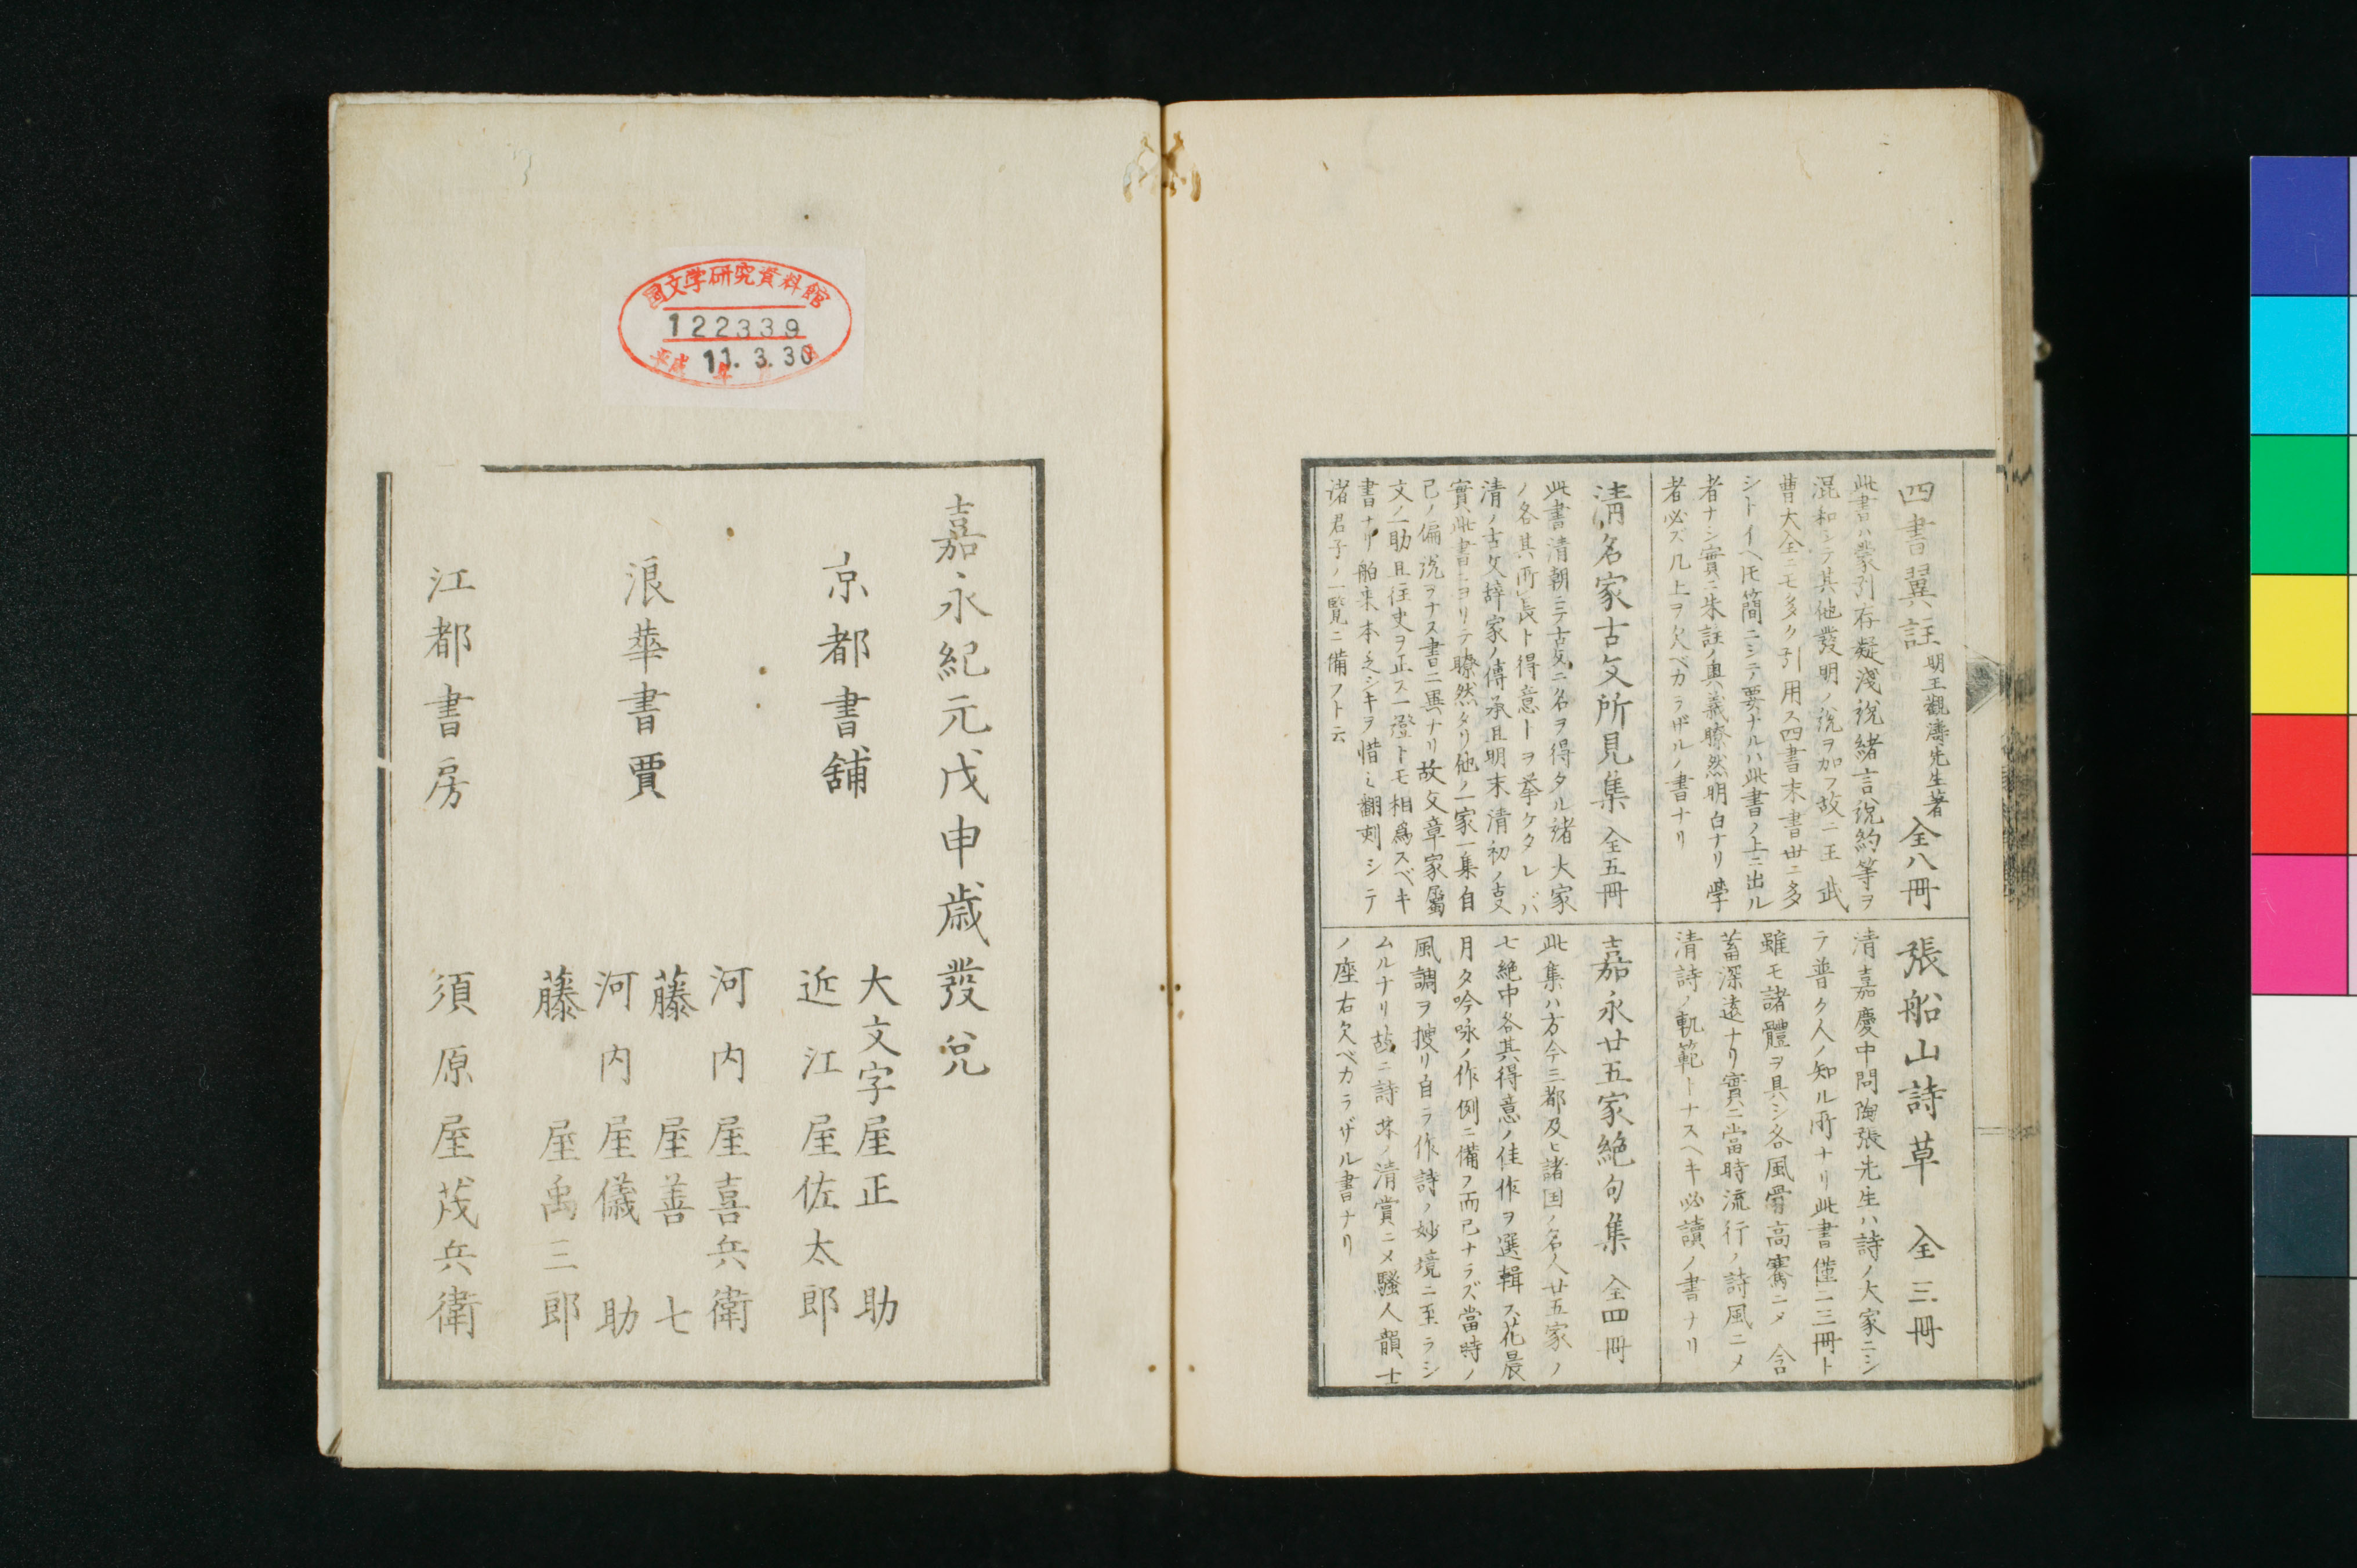 四書翼註 明王觀濤先生著 全八冊
此書ハ蒙引存疑淺說緒言說約等ヲ
混和シテ其他發明ノ說ヲ加フ故ニ王武
曹大全ニモ多ク引用ス四書末書世ニ多
シトイヘ𪜈簡ニシテ要ナルハ此書ノ上ニ出ル
者ナシ實ニ朱註ノ奧義瞭然明白ナリ學
者必ズ几上ヲ欠ベカラザルノ書ナリ
清名家古文所見集 全五冊
此書清朝ニテ古文ニ名ヲ得タル諸大家
ノ各其所長ト得意トヲ挙ケタレバ
清ノ古文辞家ノ傳承且明末清初ノ
實此書ニヨリテ瞭然タリ他ノ一家一集自
己ノ偏說ヲナス書ニ異ナリ故文章家屬
文ノ一助且往史ヲ正ス一證トモ相爲スベキ
書ナリ舶来本乏シキヲ惜ミ翻刻シテ
诸君子ノ一覧ニ備フト云
張船山詩草 全三冊
清嘉慶中問陶張先生ハ詩ノ大家ニシ
テ普ク人ノ知ル所ナリ此書僅ニ三冊ト
雖モ諸體ヲ具シ各風骨高騫ニメ含
蓄深遠ナリ實ニ當時流行ノ詩風ニメ
清詩ノ軌範トナスヘキ必讀ノ書ナリ
嘉永廿五家絶句集 全四冊
此集ハ方今三都及ヒ諸国ノ名人廿五家ノ
七絶中各其得意ノ佳作ヲ選輯ス花晨
月夕吟咏ノ作例ニ備フ而已ナラズ當時ノ
風調ヲ搜リ自ラ作詩ノ妙境ニ至ラシ
ムルナリ故ニ詩林ノ清賞ニメ騷人韻士
ノ座右欠ベカラザル書ナリ
国文学研究資料館
122339
平成 11.3.30
嘉永紀元戊申歳發兌
京都書舗
大文字屋正助
近江屋佐太郎
浪華書賈
河内屋喜兵衛
藤屋善七
河内屋儀助
藤屋禹三郎
江都書房
須原屋茂兵衛